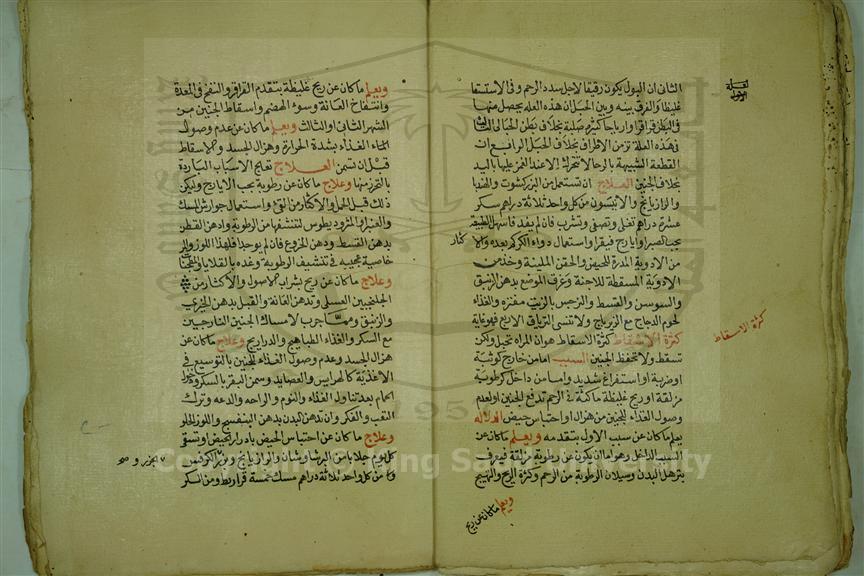 الثانى ان البول يكون رقيقا لاجل سدد الرحم وفى الاستسقا
غليظا والفرق بينه وبين الحبل ان هذه العله يحصل منها
فى البطن قراقر وارياح كثيرة صلبة بخلاف بطن الحبالى الثالث
فى هذه العلة تزمن الاطراف بخلاف الحبل الرابع ان
القطعة الشبيهة بالرحا لا تتحرك الا عند الغمز عليها باليد
بخلاف الجنين العلاج ان تستعمل من البزر كشوت والهندبا
والرازيانج والانيسون من كل واحد ثلاثة دراهم سكر
عشرة دراهم تغلى وتصفى وتشرب فان لم يفد فاسهل الطبيعة
بحب الصبر او ايارج فيقرا واستعمال دواء الكركم بعده والا
من الادوية المدرة للحيض والحقن الملينة وخذ من
الادوية المسقطة للاجنة وعرق الموضع بدهن الزنبق
والسوسن والقسط والنرجس بالزيت مفتره والغذاء
لحوم الدجاج مع الزيرباج ولا تنسى الترياق الاربع فهو غاية
كثرة الاسقاط كثرة الاسقاط هو ان المراه تحبل ولكن
تسقط ولا تحفظ الجنين السبب اما من خارج كوثبة
او ضربة او استفراغ شديد واما من داخل كرطوبة
مزلقة او ريح غليظة ماكنة فى الرحم تدفع الجنين او لعدم
وصول الغذاء للجنين من هزال او احتباس حيض الدلاله
يعلم ما كان عن سبب الاول بتقدمه ويعلم ما كان عن
السبب الداخل وهو اما ان يكون عن رطوبة مزلقة فيعرف
بترهل البدن وسيلان الرطوبة من الرحم وكثرة الريح والتهيج
ويعلم ما كان عن ريح
كثرة الاسقاط
ويعلم ما كان عن ريح غليظة بتقدم القراقر والنفخ فى المعدة
وانتفاخ العانة وسوء الهضم واسقاط الجنين من
الشهر الثانى او الثالث ويعلم ما كان عن عدم وصول
الماء الغذاء بشدة الحرارة وهزال الجسد والاسقاط
قبل ان تسمن العلاج تعالج الاسباب الباردة
بالتحرز منها وعلاج ما كان عن رطوبة بحب الايارج وليكن
ذلك قبل الحمل والاكثار من القئ واستعمال جوارش المسك
والعنبر والمثروديطوس لتنشفها من الرطوبة وادهن القطن
بدهن القسط ودهن الخروع فان لم يوجد فلهذا اللوز والبر
خاصية عجيبه فى تنشيف الرطوبة وغذه بالقلايا والمطجنات
وعلاج ما كان عن ريح بشراب الاصول والاكثار من
الجلنجبين العسلى وتدهن العانة والقبل بدهن الخيرى
والزنبق ومما جرب لامساك الجنين النارجيين
مع السكر والغذاء الطباهيج والدراريج وعلاج ما كان عن
هزال الجسد وعدم وصول الغذاء للجنين بالتوسيع فى
الاغذية كالهرايس والعصايد وسمن البقر بالسكر
الحمام بعد تناول الغذاء والنوم والراحه والدعه وترك
التعب والفكر وان تدهن البدن بدهن البنفسج واللوز الحلو
وعلاج ما كان عن احتباس الحيض بادرار الحيض وتسقى
كل يوم جلابا من البرشاوشان والرازيانج وبزر الكرفس
من كل واحد ثلاثة دراهم مسك خمسة قراريط ومن السكر